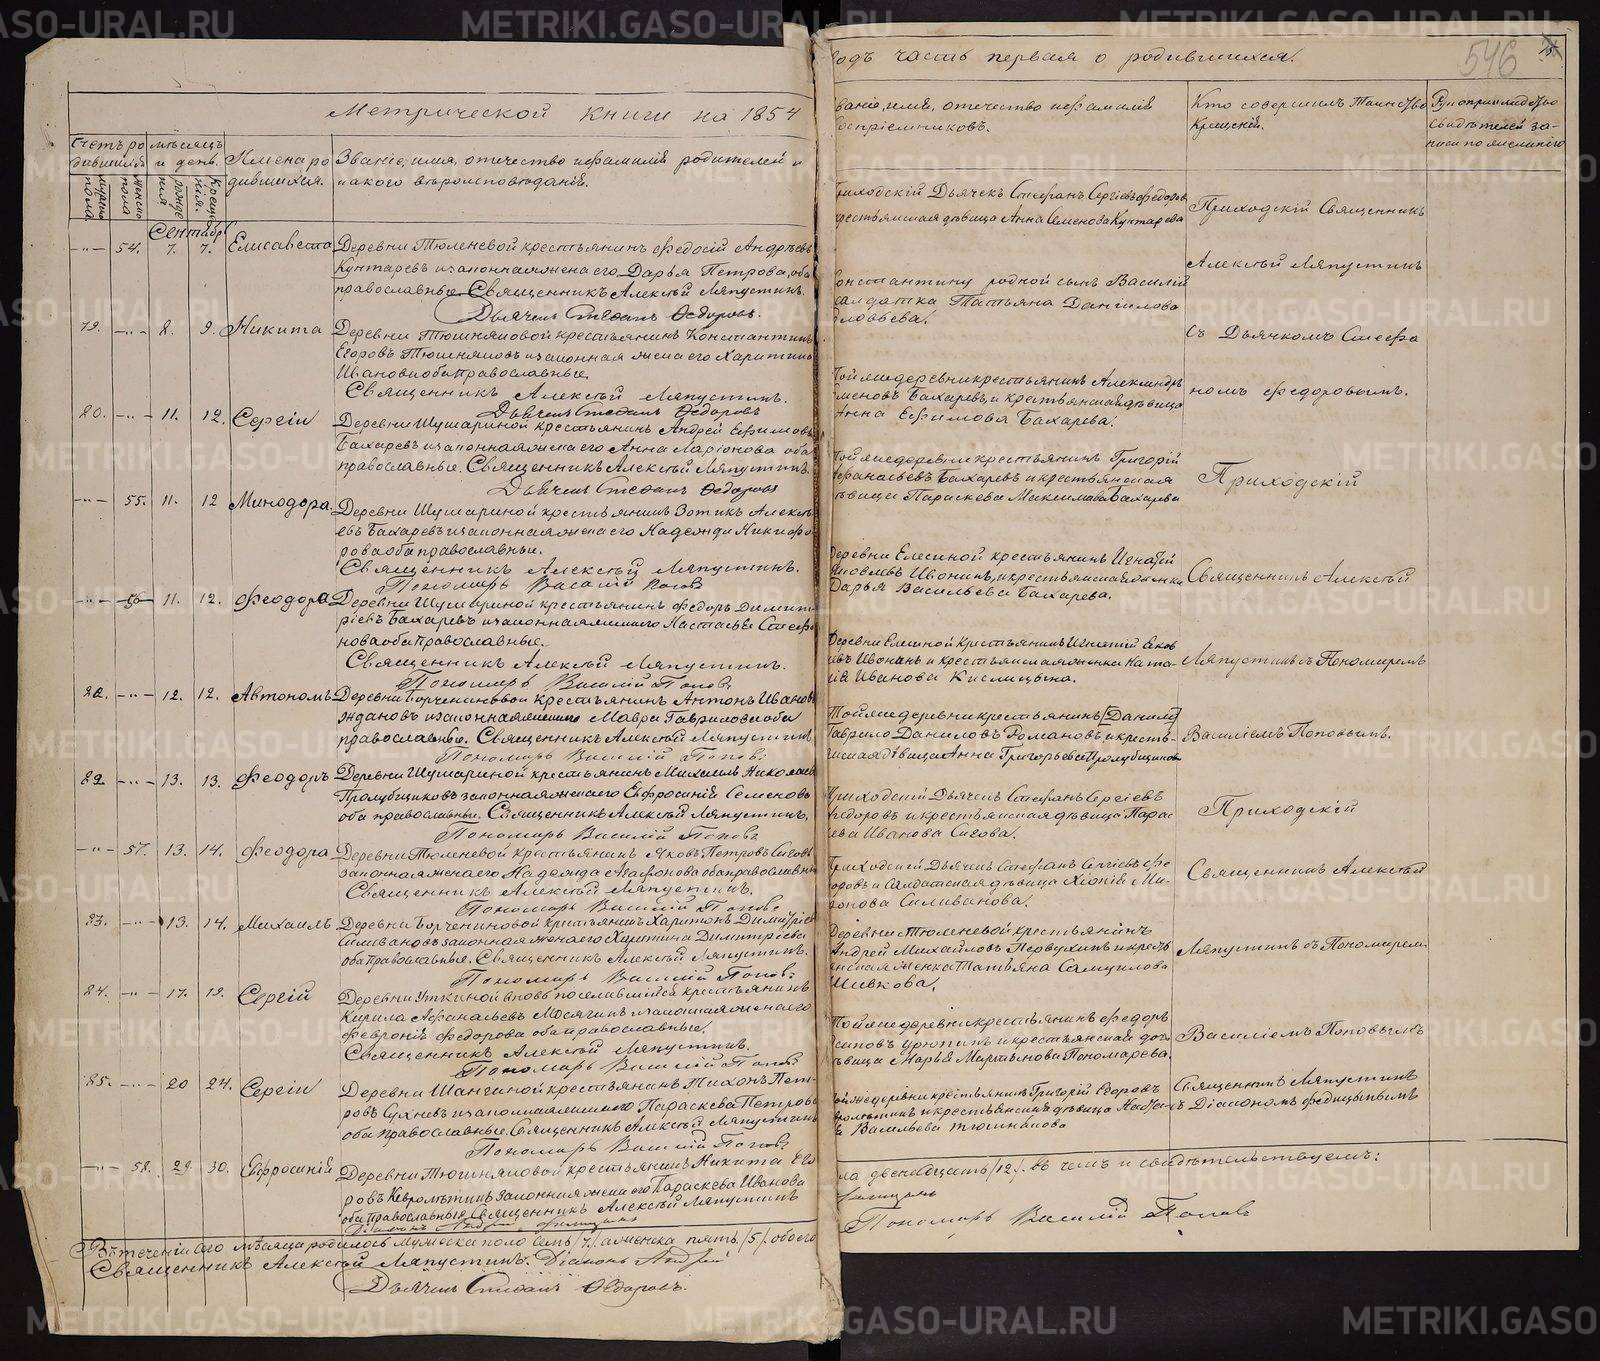 Метрической книги на 1854
Счетъ родившихся
мѣсяцъ и день.
Имена родившихся.
Званіе, имя, отечество и фамилія родителей и какого вѣроисповѣданія.
мужеска пола
женска пола
рожденія
крещенія.
Сентябрь
54. 7. 7. Елисавета
Деревни Тюленевой крестьянинъ Федосій Андрѣевъ
Кунтаревъ и законная жена его Дарья Петрова, оба
православные. Священникъ Алексѣй Ляпустинъ.
Дьячекъ Стефанъ Ѳедоровъ.
19. 8. 9. Никита
Деревни Тюшняковой крестьянинъ Константинъ
Егоровъ Тюшняковъ и законная жена его Харитина
Иванова оба православные.
Священникъ Алексѣй Ляпустинъ.
Дьячекъ Стефанъ Ѳедоровъ
20. 11. 12. Сергій
Деревни Шушариной крестьянинъ Андрей Ефимовъ
Бахаревъ и законная жена его Анна Ларіонова оба
православные. Священникъ Алексѣй Ляпустинъ.
Дьячекъ Стефанъ Ѳедоровъ
55. 11. 12 Минодора.
Деревни Шушариной крестьянинъ Зотикъ Алексѣ
евъ Бахаревъ и законная жена его Надежда Никифо
рова оба православные.
Священникъ Алексѣй Ляпустинъ.
Пономарь Василій Поповъ
56 11. 12. Феодора
Деревни Шушариной крестьянинъ Федоръ Димит
ріевъ Бахаревъ и законная жена его Настасья Стефа
нова оба православные.
Священникъ Алексѣй Ляпустинъ.
Пономарь Василій Поповъ
12. 12. Автономъ
крестьянинъ Антонъ Иванов
Ждановъ и законная жена его Мавра Гаврилова оба
православные. Священникъ Алексѣй Ляпустинъ
Пономарь Василій Поповъ.
13. 13. Феодоръ
Деревни Шушариной крестьянинъ Михаилъ Николаевъ
Пролубщиковъ законная жена его Евфросинія Семенова
оба православные. Священникъ Алексѣй Ляпустинъ.
Пономарь Василій Поповъ
57. 13. 14. Феодора
Деревни Тюленевой крестьянинъ Яковъ Петровъ Сысовъ
законная жена его Надежда Агафонова оба православные
Священникъ Алексѣй Ляпустинъ.
Пономарь Василій Поповъ.
23. 13. 14. Михаилъ
крестьянинъ Харитонъ Димитріев
Силивановъ законная жена его Харитина Димитріева
оба православные. Священникъ Алексѣй Ляпустинъ.
Пономарь Василій Поповъ.
24. 17. 19. Сергій
Деревни Уткиной вновь поселившійся крестьянинъ
Кирила Афанасьевъ и законная жена его
Февронія Федорова оба православные.
Священникъ Алексѣй Ляпустинъ.
Пономарь Василій Поповъ
25. 20 24. Сергій
Деревни крестьянинъ Тихонъ Пет-
ровъ Сухневъ и законная жена его Параскева Петрова
оба православные. Священникъ Алексѣй Ляпустинъ
Пономарь Василій Поповъ.
58. 29. 30. Евфросинія
Деревни Тюшняковой крестьянинъ Никита Его
ровъ законная жена его Параскева Иванова
оба православные. Священникъ Алексѣй Ляпустинъ
Діаконъ Андрей
Въ теченіи сего мѣсяца родилось мужеска пола семь /7/. а женска пять /5/. обоего
Священникъ Алексѣй Ляпустинъ. Діаконъ Андрей
Дьячекъ Стефанъ Ѳедоровъ.
годъ часть первая о родившихся.
546
званіе, имя, отечество и фамилія
воспріемниковъ.
Кто совершилъ Таинство
Крещенія.
Рукоприкладство
свидѣтелей за-
писи по желанію
Приходскій Дьячекъ Стефанъ Сергіевъ Федоровъ
крестьянская дѣвица Анна Семенова Кунтарева
Константину родной сынъ Василій
солдатка Татьяна Данилова
Той же деревни крестьянинъ Александръ
Семеновъ Бахаревъ, и крестьянская дѣвица
Анна Ефимова Бахарева.
Той же деревни крестьянинъ Григорій
Афанасьевъ Бахаревъ и крестьянская
дѣвица Параскева Максимова Бахарева
Деревни Елесиной крестьянинъ Игнатій
Яковлевъ Ивонинъ, и крестьянская женка
Дарья Васильева Бахарева.
Деревни Елесиной крестьянинъ Игнатій Яков
левъ Ивонинъ и крестьянская женка Ната-
лія Иванова Кислицына.
Той же деревни крестьянинъ Данило
Гаврило Даниловъ Романовъ и кресть-
янская дѣвица Анна Григорьева Пролубщикова
Приходскій Дьячекъ Стефанъ Сергіевъ
Федоровъ и крестьянская дѣвица Парас
кева Иванова Сысова.
Приходскій Дьячекъ Стефанъ Сергіевъ Фе
доровъ и Солдатская дѣвица Хіонія Ми-
ронова Силиванова.
Деревни Тюленевой крестьянинъ
Андрей Михайловъ Первухинъ и кресть
янская женка Татьяна Самуилова
Шивкова.
Той же деревни крестьянинъ Федоръ
Осиповъ Урюпинъ и крестьянская доч
дѣвица Марья Мартынова Пономарева.
Той же деревни крестьянинъ Григорій Егоровъ
и крестьянская дѣвица
Васильева Тюшнякова
Приходскій Священникъ
Алексѣй Ляпустинъ
съ Дьячкомъ Стефа
номъ Федоровымъ.
Приходскій
Священникъ Алексѣй
Ляпустинъ съ Пономаремъ
Василіемъ Поповымъ.
Приходскій
Священникъ Алексѣй
Ляпустинъ съ Пономаремъ
Василіемъ Поповымъ
Священникъ Ляпустинъ
съ Діакономъ
пола двенадцать /12/. въ чемъ и свидѣтельствуемъ:
Пономарь Василій Поповъ
METRIKI.GASO-URAL.RU